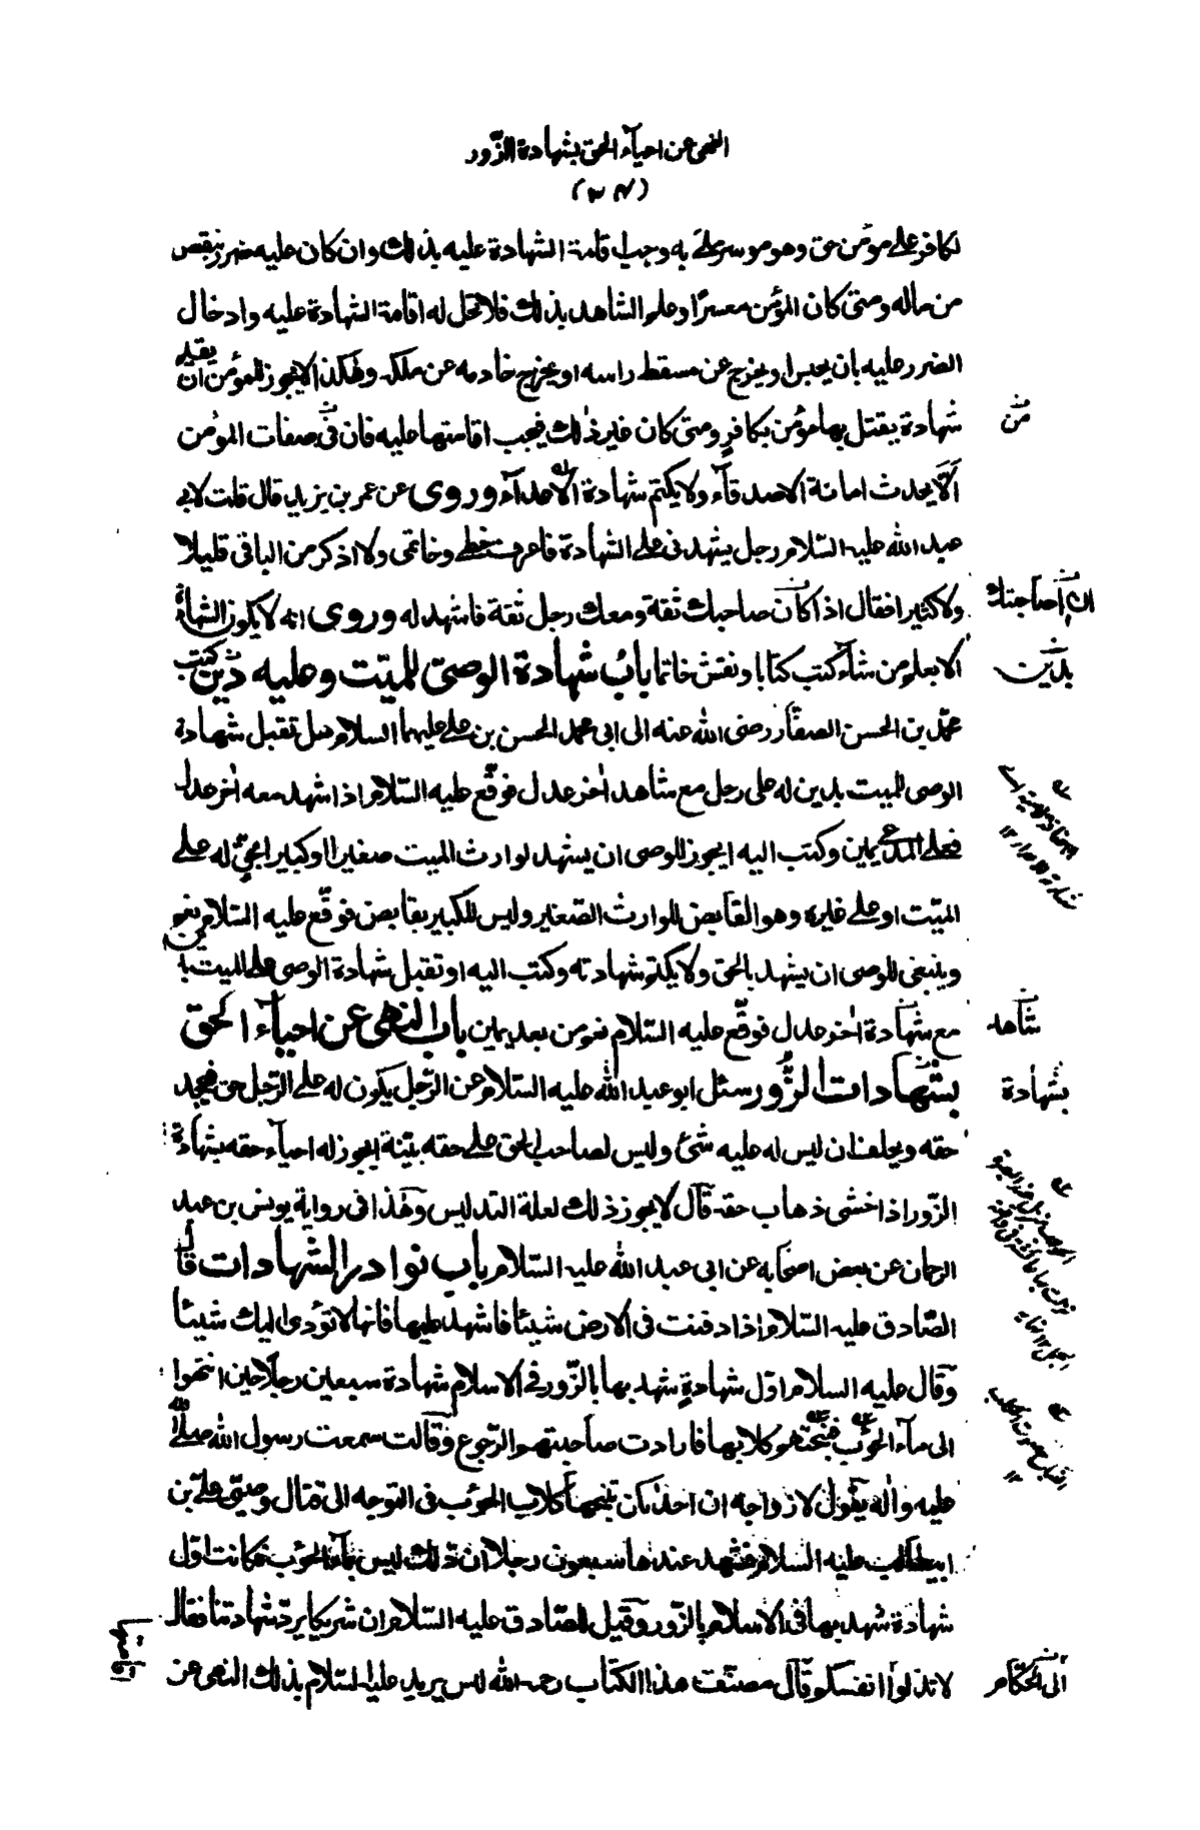 النهى عن احياء الحق بشهادة الزور
لكافر على مؤمن حق وهو موسر ملىّ به وجب اقامة الشهادة عليه بذلك وان كان عليه ضرر بنقص
من ماله ومتى كان المؤمن معسرًا وعلم الشاهد بذلك فلا تحل له اقامة الشهادة عليه وادخال
الضرر عليه بان يحبس او يخرج عن مسقط راسه او يخرج خادمه عن ملكه وهكذا لا يجوز للمؤمن ان يقيم
شهادة يقتل بها مؤمن بكافر ومتى كان غير ذلك فيجب اقامتها عليه فان فى صفات المؤمن
من
الّا يحدث امانة الاصدقاء ولا يكتم شهادة الاعداء وروى عن عمر بن يزيد قال قلت لابى
عبد الله عليه السلام رجل يشهدنى على الشهادة فاعرف خطى وخاتمى ولا اذكر من الباقى قليلا
ولا كثيرا فقال اذا كان صاحبك ثقة ومعك رجل ثقة فاشهد له وروى انه لا يكون الشهادة
الا بعلم من شاء كتب كتابا ونقش خاتما باب شهادة الوصى للميّت وعليه دين كتب
بدَين
محمّد بن الحسن الصفار رضى الله عنه الى ابى محمد الحسن بن على عليهما السلام هل تقبل شهادة
الوصى للميت بدين له على رجل مع شاهد اٰخر عدل فوقّع عليه السّلام اذا شهد معه اٰخر عدل
فعلى المدعى يمين وكتب اليه ايجوز للوصى ان يشهد لوارث الميت صغيرا او كبيرا بحقّ له على
الميّت او على غيره وهو القابض للوارث الصّغير وليس للكبير بقابض فوقّع عليه السّلام نعم
وينبغى للوصى ان يشهد بالحق ولا يكتم شهادته وكتب اليه او تقبل شهادة الوصى على الميت بدين
مع شهادة اٰخر عدل فوقّع عليه السّلام نعم من بعد يمين باب النهى عن احياء الحق
شاهد
بشهادات الزُّور سئل ابو عبد الله عليه السّلام عن الرّجل يكون له على الرّجل حق فيجحد
بشهادة
حقه ويحلف ان ليس له عليه شئ وليس لصاحب الحق على حقه بيّنة ايجوز له احياء حقه بشهادة
الزّور اذا خشى ذهاب حقه قال لا يجوز ذلك لعلة التدليس وهٰذا فى رواية يونس بن عبد
الرحمان عن بعض اصحابه عن ابى عبد الله عليه السّلام باب نوادر الشهادات قال
الصّادق عليه السّلام اذا دفنت فى الارض شيئا فاشهد عليها فانها لا تؤدى اليك شيئا
وقال عليه السلام اوّل شهادةٍ شهد بها بالزّور فى الاسلام شهادة سبعين رجلًا حين انتهوا
الى ماء الحوئب فنبحتهم كلابها فارادت صاحبتهم الرّجوع وقالت سمعت رسول الله صلى الله
عليه واٰله يقول لازواجه ان احداكن تنبحها كلاب الحوئب فى التوجه الى قتال وصيّى علىّ بن
ابيطالب عليه السلام فشهد عندها سبعون رجلا ان ذلك ليس بماء الحوئب فكانت اوّل
شهادة شهد بها فى الاسلام بالزّور وقيل للصّادق عليه السّلام ان شريكا يردّ شهادتنا فقال
لا تذلوا انفسكم وقال مصنّف هذا الكتاب رحمه الله ليس يريد عليه السّلام بذلك النهى عن
الى الحكام